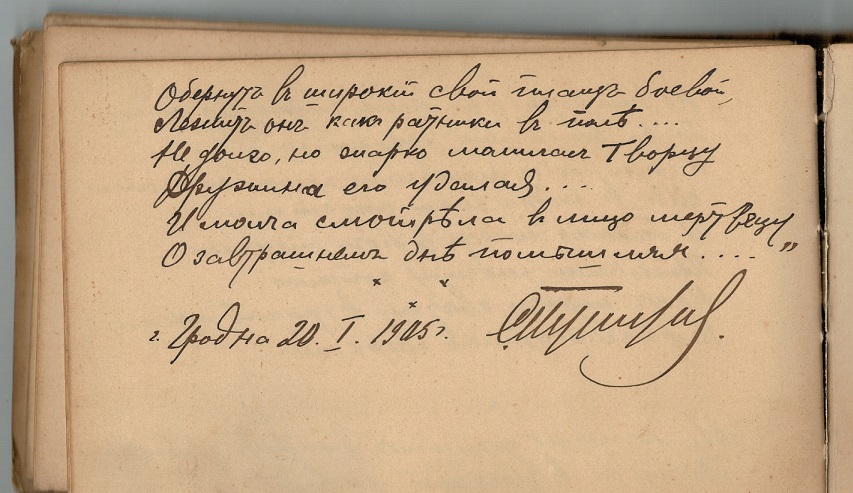 Обернутъ въ широкій свой плащъ боевой,
Лежитъ онъ какъ ратники въ полѣ....
Не долго, но жарко молилась Творцу
Дружина его удалая...
И молча смотрѣла въ лицо мертвецу
О завтрашнемъ днѣ помышляя.... „
г. Гродна 20. I. 1905 г.